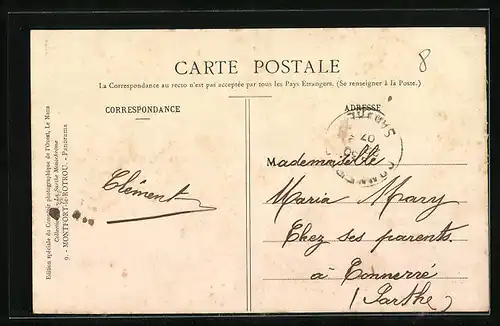 8
CARTE POSTALE
La Correspondance au recto n'est pas acceptée par tous les Pays Etrangers. (Se renseigner à la Poste.)
CORRESPONDANCE
ADRESSE
Clément
Mademoiselle
Maria Mary
Chez ses parents
à Connerré
(Sarthe)
SARTHE
07
Edition spéciale du Comptoir photographique de l'Ouest, Le Mans
La Sarthe
9. - MONTFORT-le-ROTROU. - Panorama